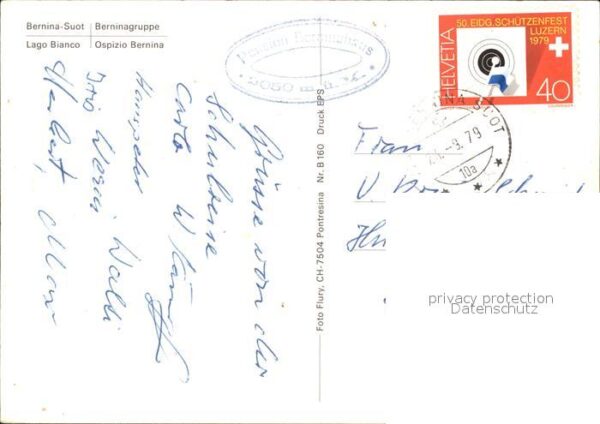 Bernina-Suot | Berninagruppe
Lago Bianco | Ospizio Bernina
Pension Berninahaus
2050 m ü. M.
50. EIDG. SCHÜTZENFEST
LUZERN
1979
HELVETIA
40
BERNINA SUOT
-9.79
10a
Foto Flury, CH-7504 Pontresina Nr. B 160 Druck EPS
Grüsse von der
Schulreise
Carlo
Hanspeter
Werni Walti
Herbert, Max
Frau
privacy protection
Datenschutz